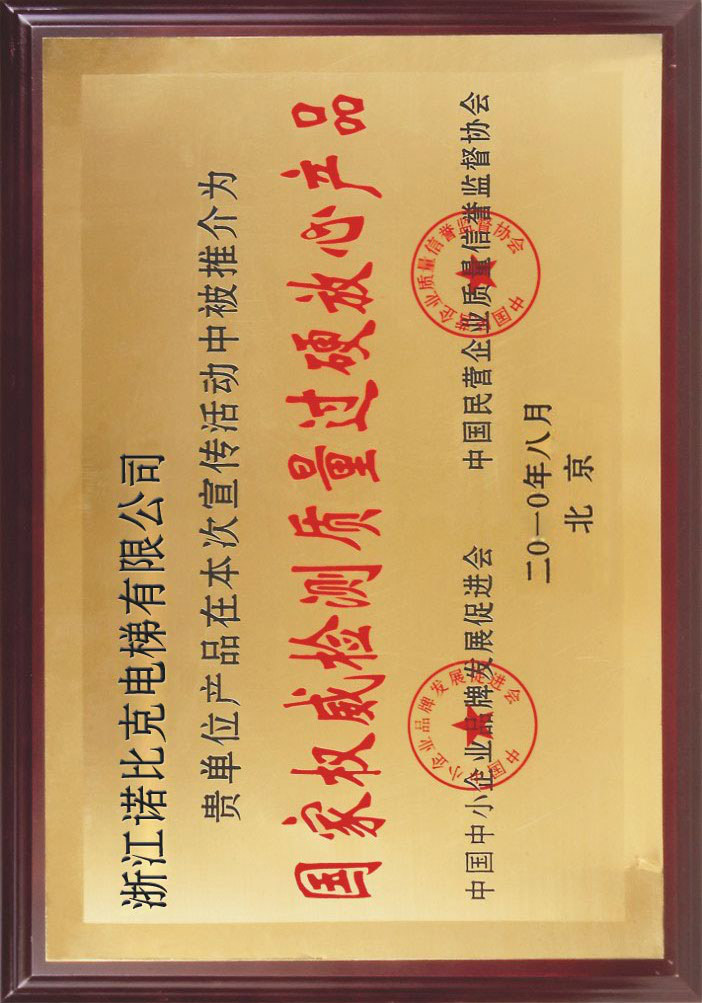 浙江诺比克电梯有限公司
贵单位产品在本次宣传活动中被推介为
国家权威检测质量过硬放心产品
中国中小企业品牌发展促进会 中国民营企业质量信誉监督协会
中国中小企业品牌发展促进会
中国民营企业质量信誉监督协会
二〇一〇年八月
北京